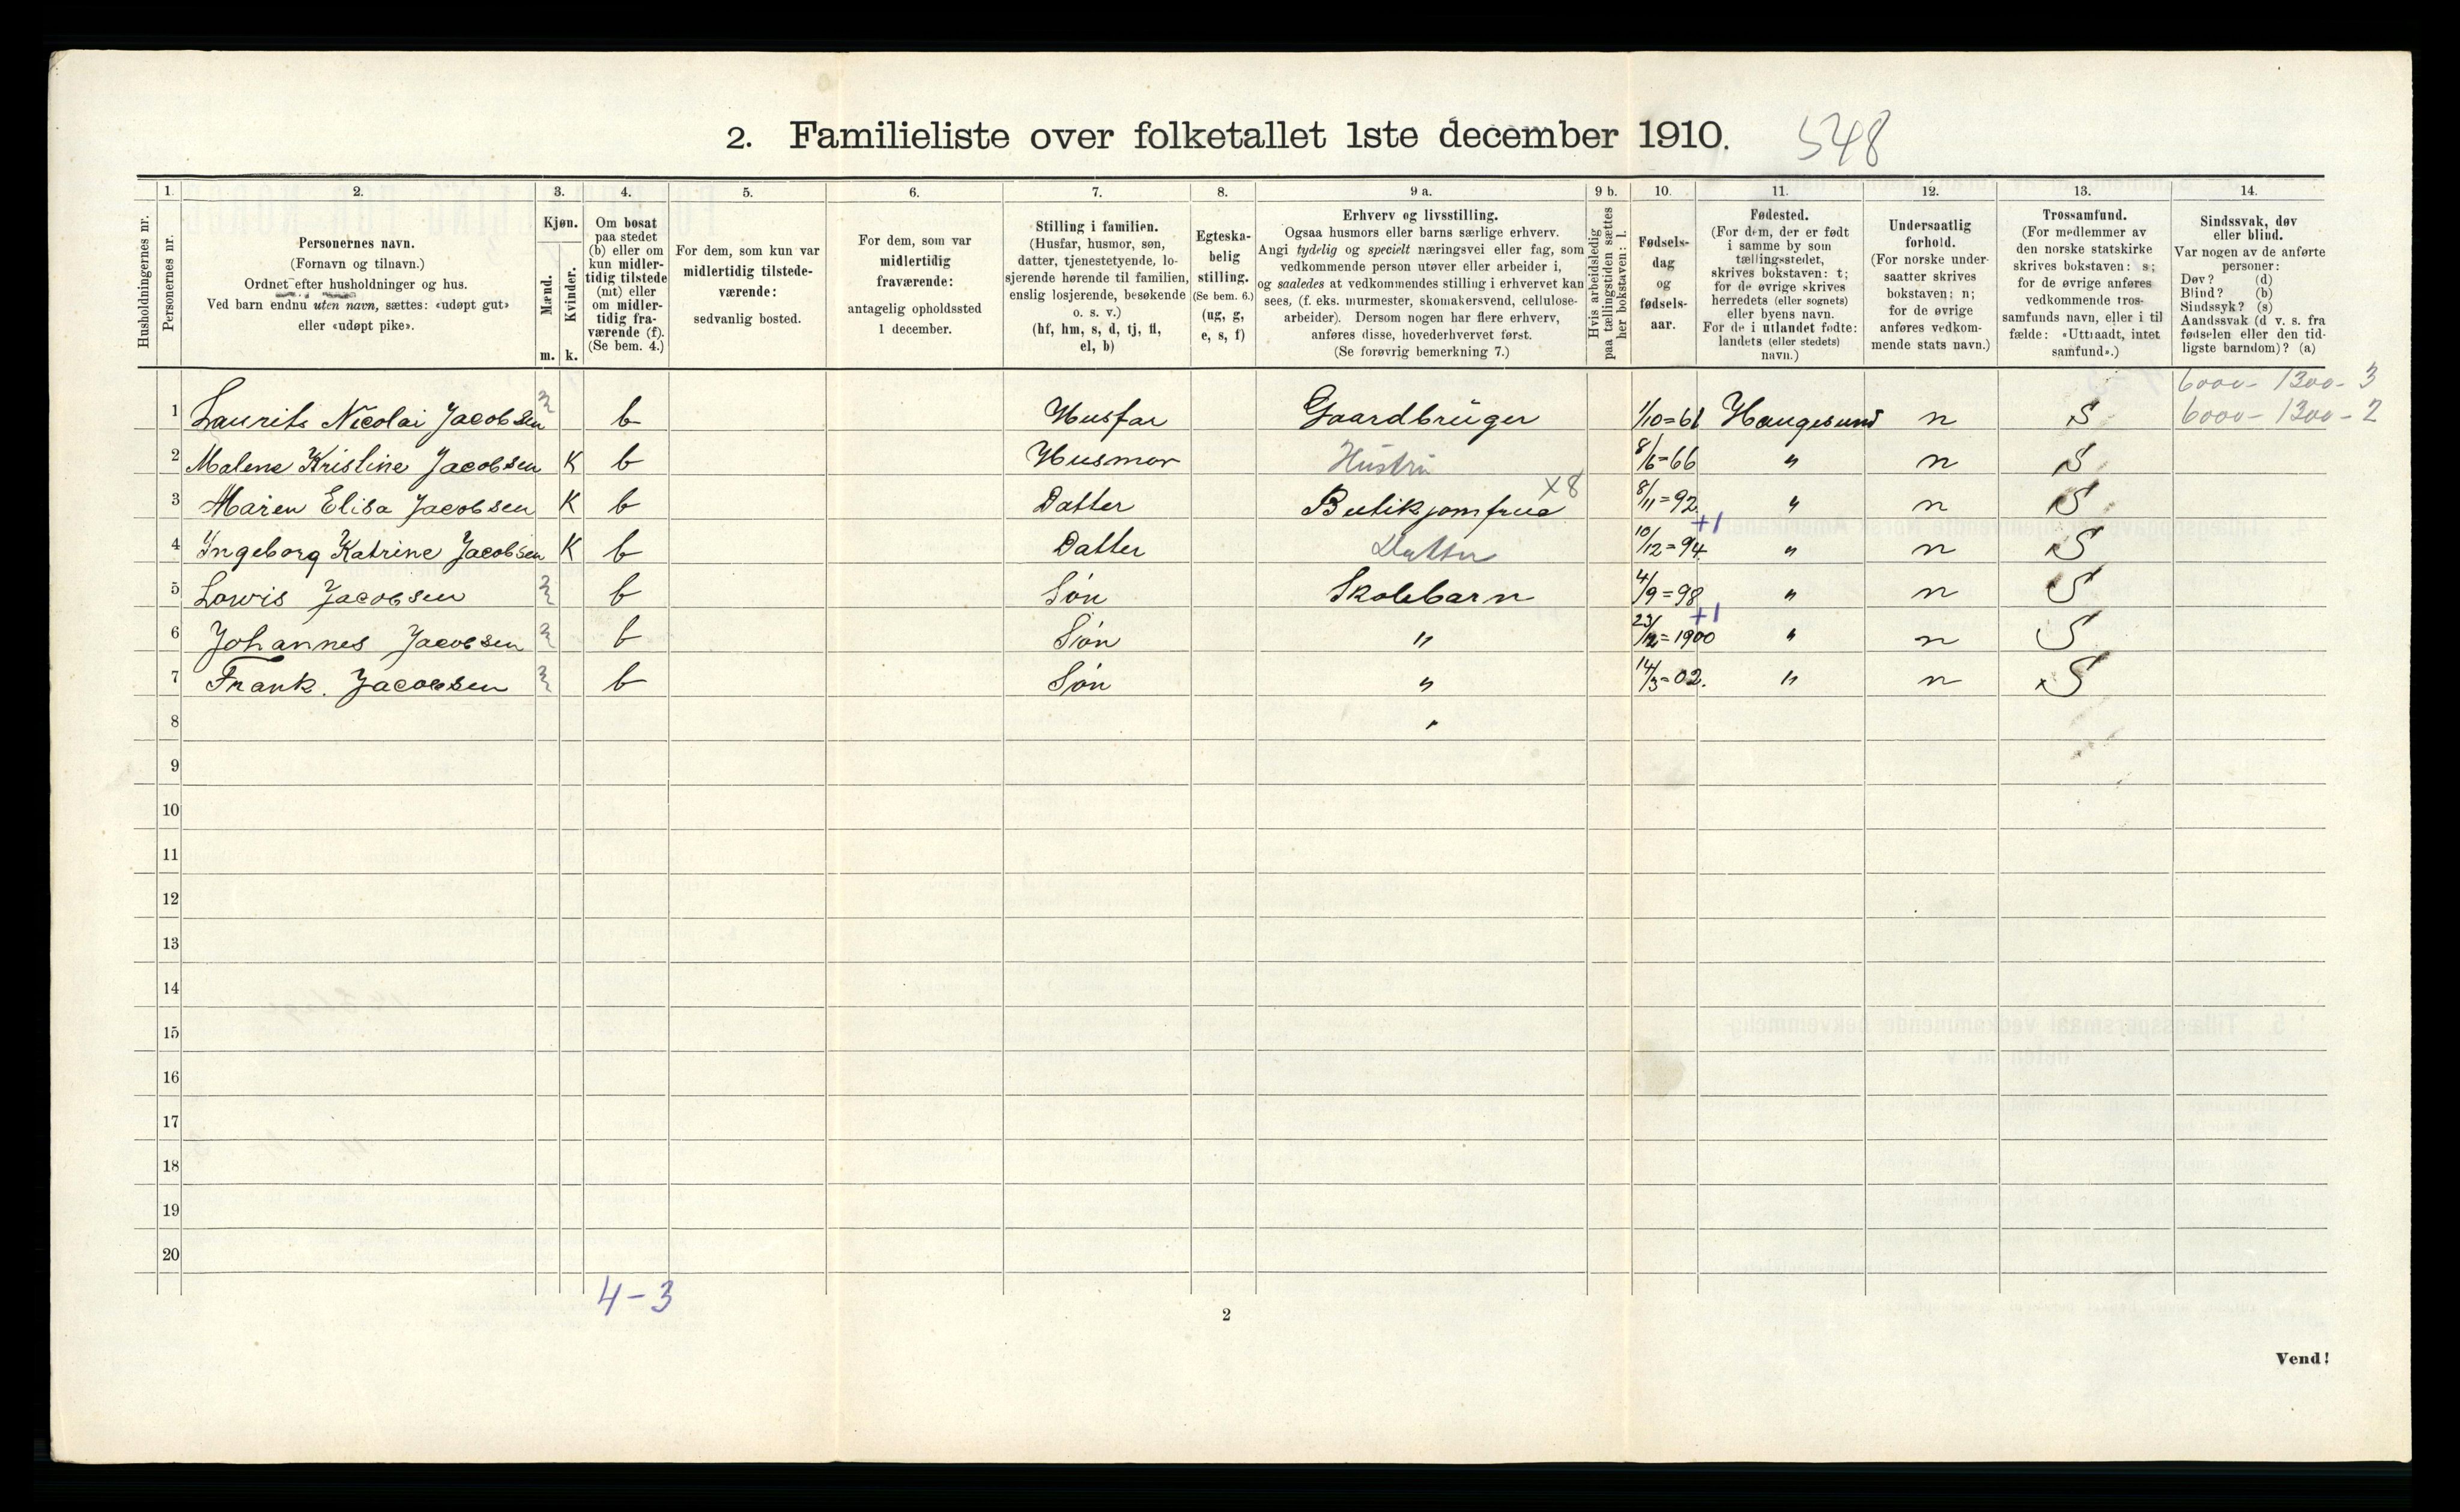 2. Familieliste over folketallet 1ste december 1910. 548
Husholdningernes nr.
1. Personernes nr.
2. Personernes navn.
(Fornavn og tilnavn.)
Ordnet efter husholdninger og hus.
Ved barn endnu uten navn, sættes: «udøpt gut»
eller «udøpt pike».
3. Kjøn.
Mænd. m.
Kvinder. k.
4. Om bosat
paa stedet
(b) eller om
kun midler-
tidig tilstede
(mt) eller
om midler-
tidig fra-
værende (f).
(Se bem. 4.)
5. For dem, som kun var
midlertidig tilstede-
værende:
sedvanlig bosted.
6. For dem, som var
midlertidig
fraværende:
antagelig opholdssted
1 december.
7. Stilling i familien.
(Husfar, husmor, søn,
datter, tjenestetyende, lo-
sjerende hørende til familien,
enslig losjerende, besøkende
o. s. v.)
(hf, hm, s, d, tj, fl,
el, b)
8. Egteska-
belig
stilling.
(Se bem. 6.)
(ug, g,
e, s, f)
9 a. Erhverv og livsstilling.
Ogsaa husmors eller barns særlige erhverv.
Angi tydelig og specielt næringsvei eller fag, som
vedkommende person utøver eller arbeider i,
og saaledes at vedkommendes stilling i erhvervet kan
sees, (f. eks. murmester, skomakersvend, cellulose-
arbeider). Dersom nogen har flere erhverv,
anføres disse, hovederhvervet først.
(Se forøvrig bemerkning 7.)
9 b. Hvis arbeidsledig
paa tællingstiden sættes
her bokstaven: l.
10. Fødsels-
dag
og
fødsels-
aar.
11. Fødested.
(For dem, der er født
i samme by som
tællingsstedet,
skrives bokstaven: t;
for de øvrige skrives
herredets (eller sognets)
eller byens navn.
For de i utlandet fødte:
landets (eller stedets)
navn.)
12. Undersaatlig
forhold.
(For norske under-
saatter skrives
bokstaven: n;
for de øvrige
anføres vedkom-
mende stats navn.)
13. Trossamfund.
(For medlemmer av
den norske statskirke
skrives bokstaven: s;
for de øvrige anføres
vedkommende tros-
samfunds navn, eller i til
fælde: «Uttraadt, intet
samfund».)
14. Sindssvak, døv
eller blind.
Var nogen av de anførte
personer:
Døv? (d)
Blind? (b)
Sindssyk? (s)
Aandssvak (d v. s. fra
fødselen eller den tid-
ligste barndom)? (a)
6000 - 1300 - 3
1 Laurits Nicolai Jacobsen b Husfar Gaardbruger 1/10=61 Haugesund n S 6000 - 1300 - 2
2 Malene Kristine Jacobsen K b Husmor Hustru 8/6=66 " n S
3 Maren Elisa Jacobsen K b Datter Butikjomfrue x8 8/11=92 " n S
+1
4 Ingeborg Katrine Jacobsen K b Datter Datter 10/12=94 " n S
5 Lowis Jacobsen b Søn Skolebarn 4/9=98 " n S
+1
6 Johannes Jacobsen b Søn " 23/12=1900 " n S
7 Frank. Jacobsen b Søn " 14/3=02. " n xS
8 "
9
10
11
12
13
14
15
16
17
18
19
20
4-3
2
Vend!